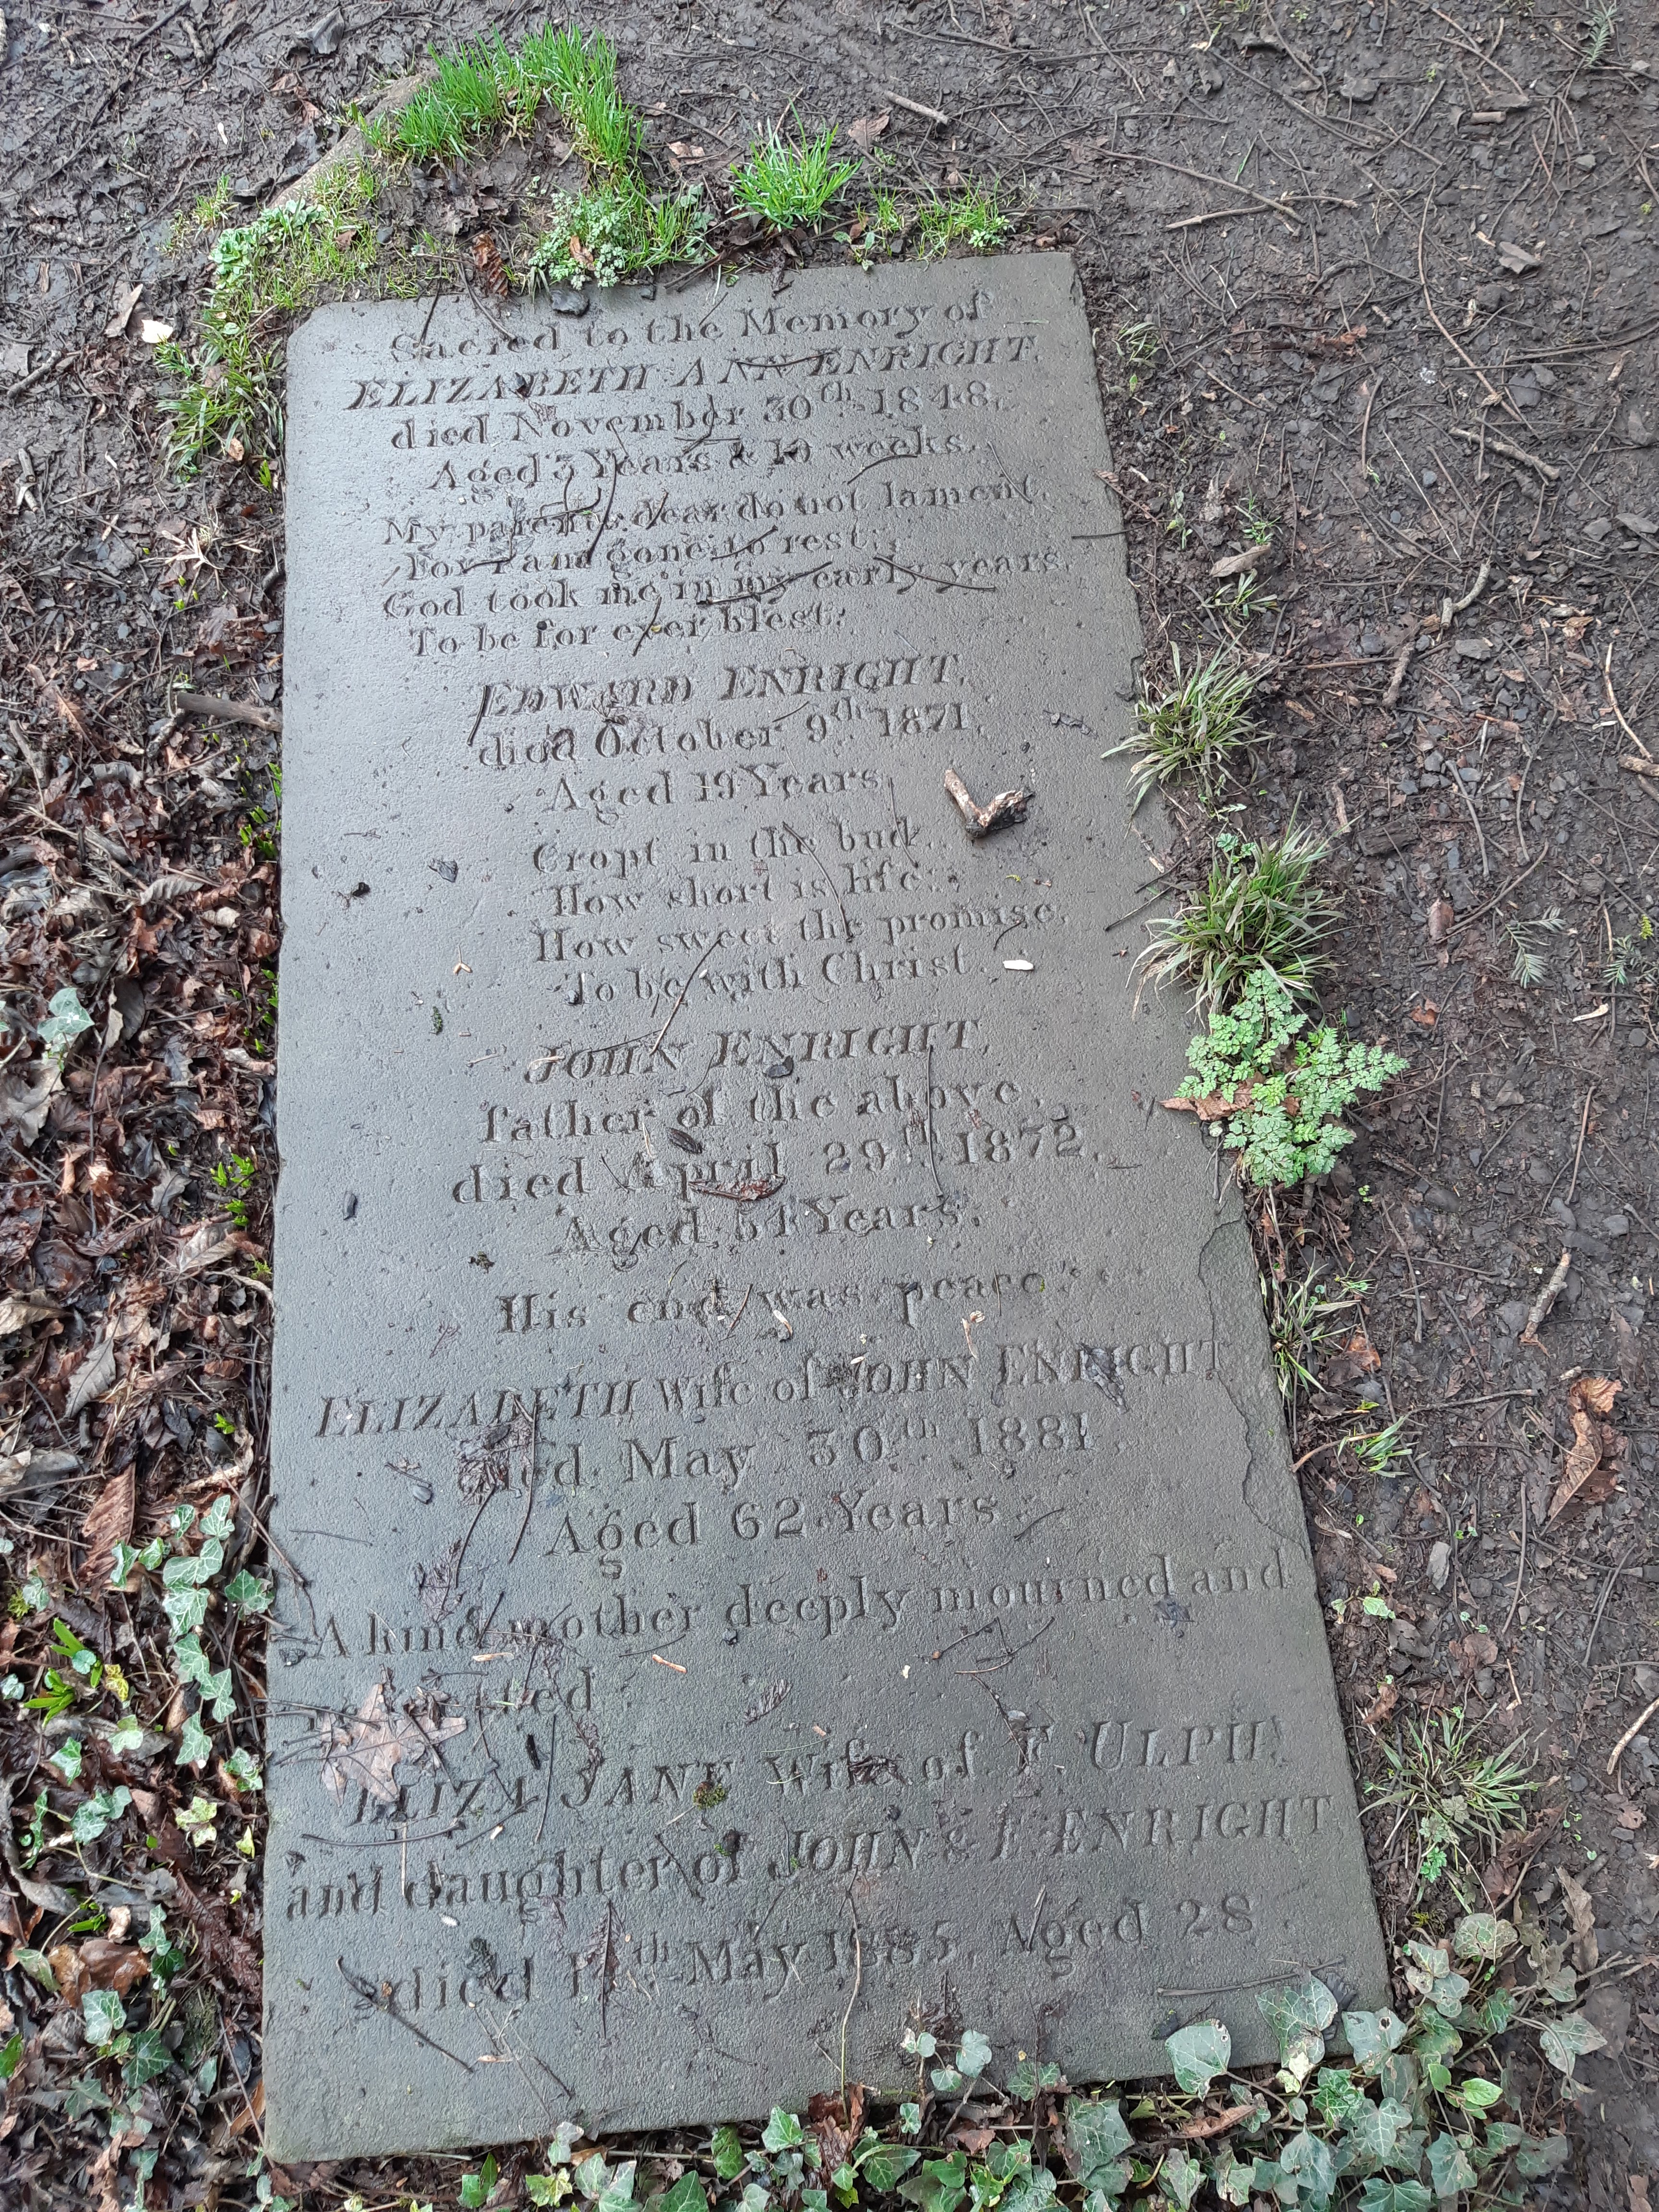 Sacred to the Memory of
ELIZABETH ANN ENRIGHT,
died November 30th 1848,
Aged 3 Years & 10 weeks.
My parents dear do not lament,
For I am gone to rest;
God took me in my early years,
To be for ever blest.
EDWARD ENRIGHT,
died October 9th 1871,
Aged 19 Years.
Cropt in the bud,
How short is life;
How sweet the promise,
To be with Christ.
JOHN ENRIGHT,
father of the above,
died April 29th 1872,
Aged 54 Years.
His end was peace.
ELIZABETH Wife of JOHN ENRIGHT
died May 30th 1881
Aged 62 Years.
A kind mother deeply mourned and
ELIZA JANE Wife of F. ULPH,
and daughter of JOHN & E. ENRIGHT,
died May 1885, Aged 28